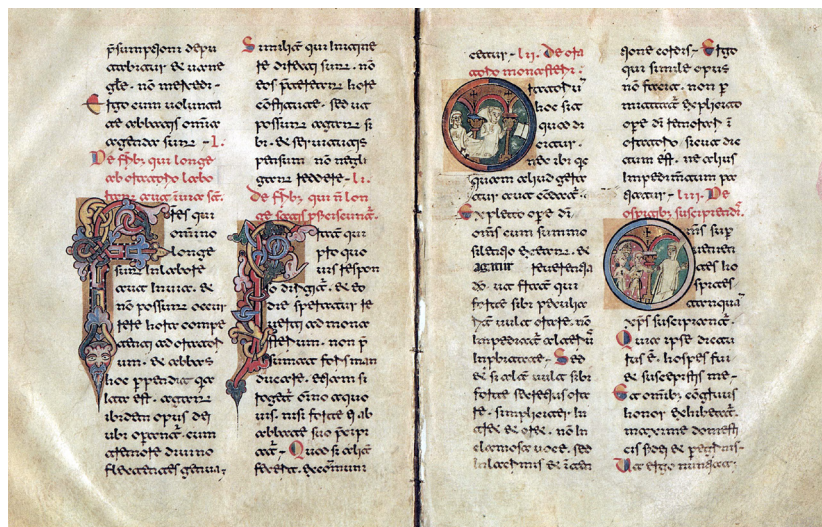 p̄sumptioni depu
tabitur et vane
glē. non mercedi.
Ergo cum volunta
te abbatis omnia
agenda sunt. L.
De frīb; qui longe
ab oratorio labo
rant aut in via sūt.
Fratres qui
omnino
longe
sunt in labore
aut in via. et
non possunt occur
rere hora compe
tenti ad oratori
um. et abbas
hoc p̄pendit q̄a
ita est. agant
ibidem opus dei
ubi operant̄. cum
tremore divino
flectentes genua;
Similit̄ qui in itine
re directi sunt. nō
eos p̄tereant hore
cōstitute. sed ut
possunt agant si
bi. et servitutis
pensum. nō negli
gant reddere. Li.
De frīb; qui ñ lon
ge satis p̄ficiscunt̄.
Frater qui
pro quo
vis respon
so dirigit̄. et eo
die speratur re
verti ad mona
sterium. non p̄
sumat foris man
ducare. etiam si
rogetur ōīno a quo
vis. nisi forte ei ab
abbate suo p̄cipi
at̄. Quod si aliter
fecerit. excōmuni
cetur. Lii. De ora
torio monasterii.
Oratoriū
hoc sit
quod di
citur.
nec ibi q̄
quam aliud gera
tur aut condat̄.
Expleto ope dī
om̄s cum summo
silentio exeant. et
agitur reverentia
dō. ut frater qui
forte sibi peculia
rit̄ vult orare. nō
impediat̄ alteriū
inprobitate. Sed
et si alit̄ vult sibi
forte secretius ora
re. simpliciter in
tret et oret. non in
clamosa voce. sed
in lacrimis et inten
tione cordis. Ergo
qui simile opus
non facit. non p̄
mittat̄ explicito
ope dī remorari ī
oratorio sicut dic
tum est. ne alius
impedimentum pa
tiatur. Liii. De
ospitib; suscipiendi.
Om̄s sup
venien
tes ho
spites
tamquā
xp̄s suscipiant̄.
Quia ipse dictu
rus ē. hospes fui
et suscepistis me.
Et omīb; cōgruus
honor exhibeat̄.
maxime domesti
cis fidei et pegrinis.
Ut ergo nuntiat̄.